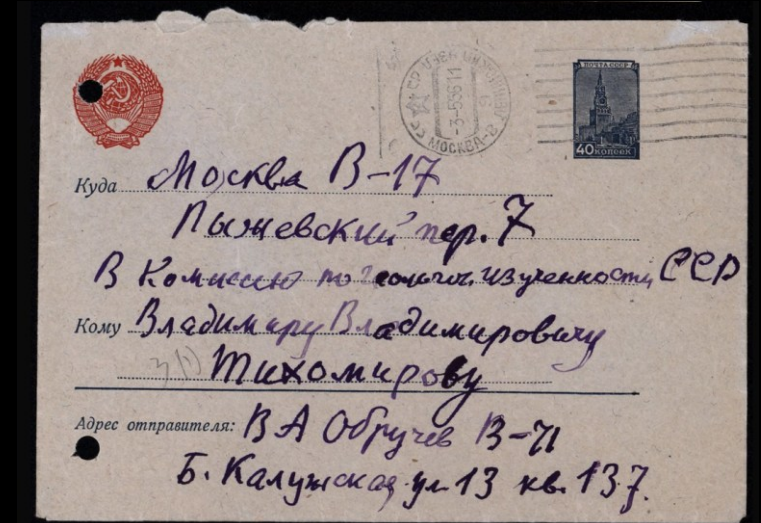 ПОЧТА СССР
40 КОПЕЕК
-3-5 56 11
МОСКВА-8
Куда Москва В-17
Пыжевский пер. 7
В Комиссию по геологич. изученности СССР
Кому Владимиру Владимировичу
Тихомирову
Адрес отправителя: В А Обручев В-71
Б. Калужская ул 13 кв. 137.